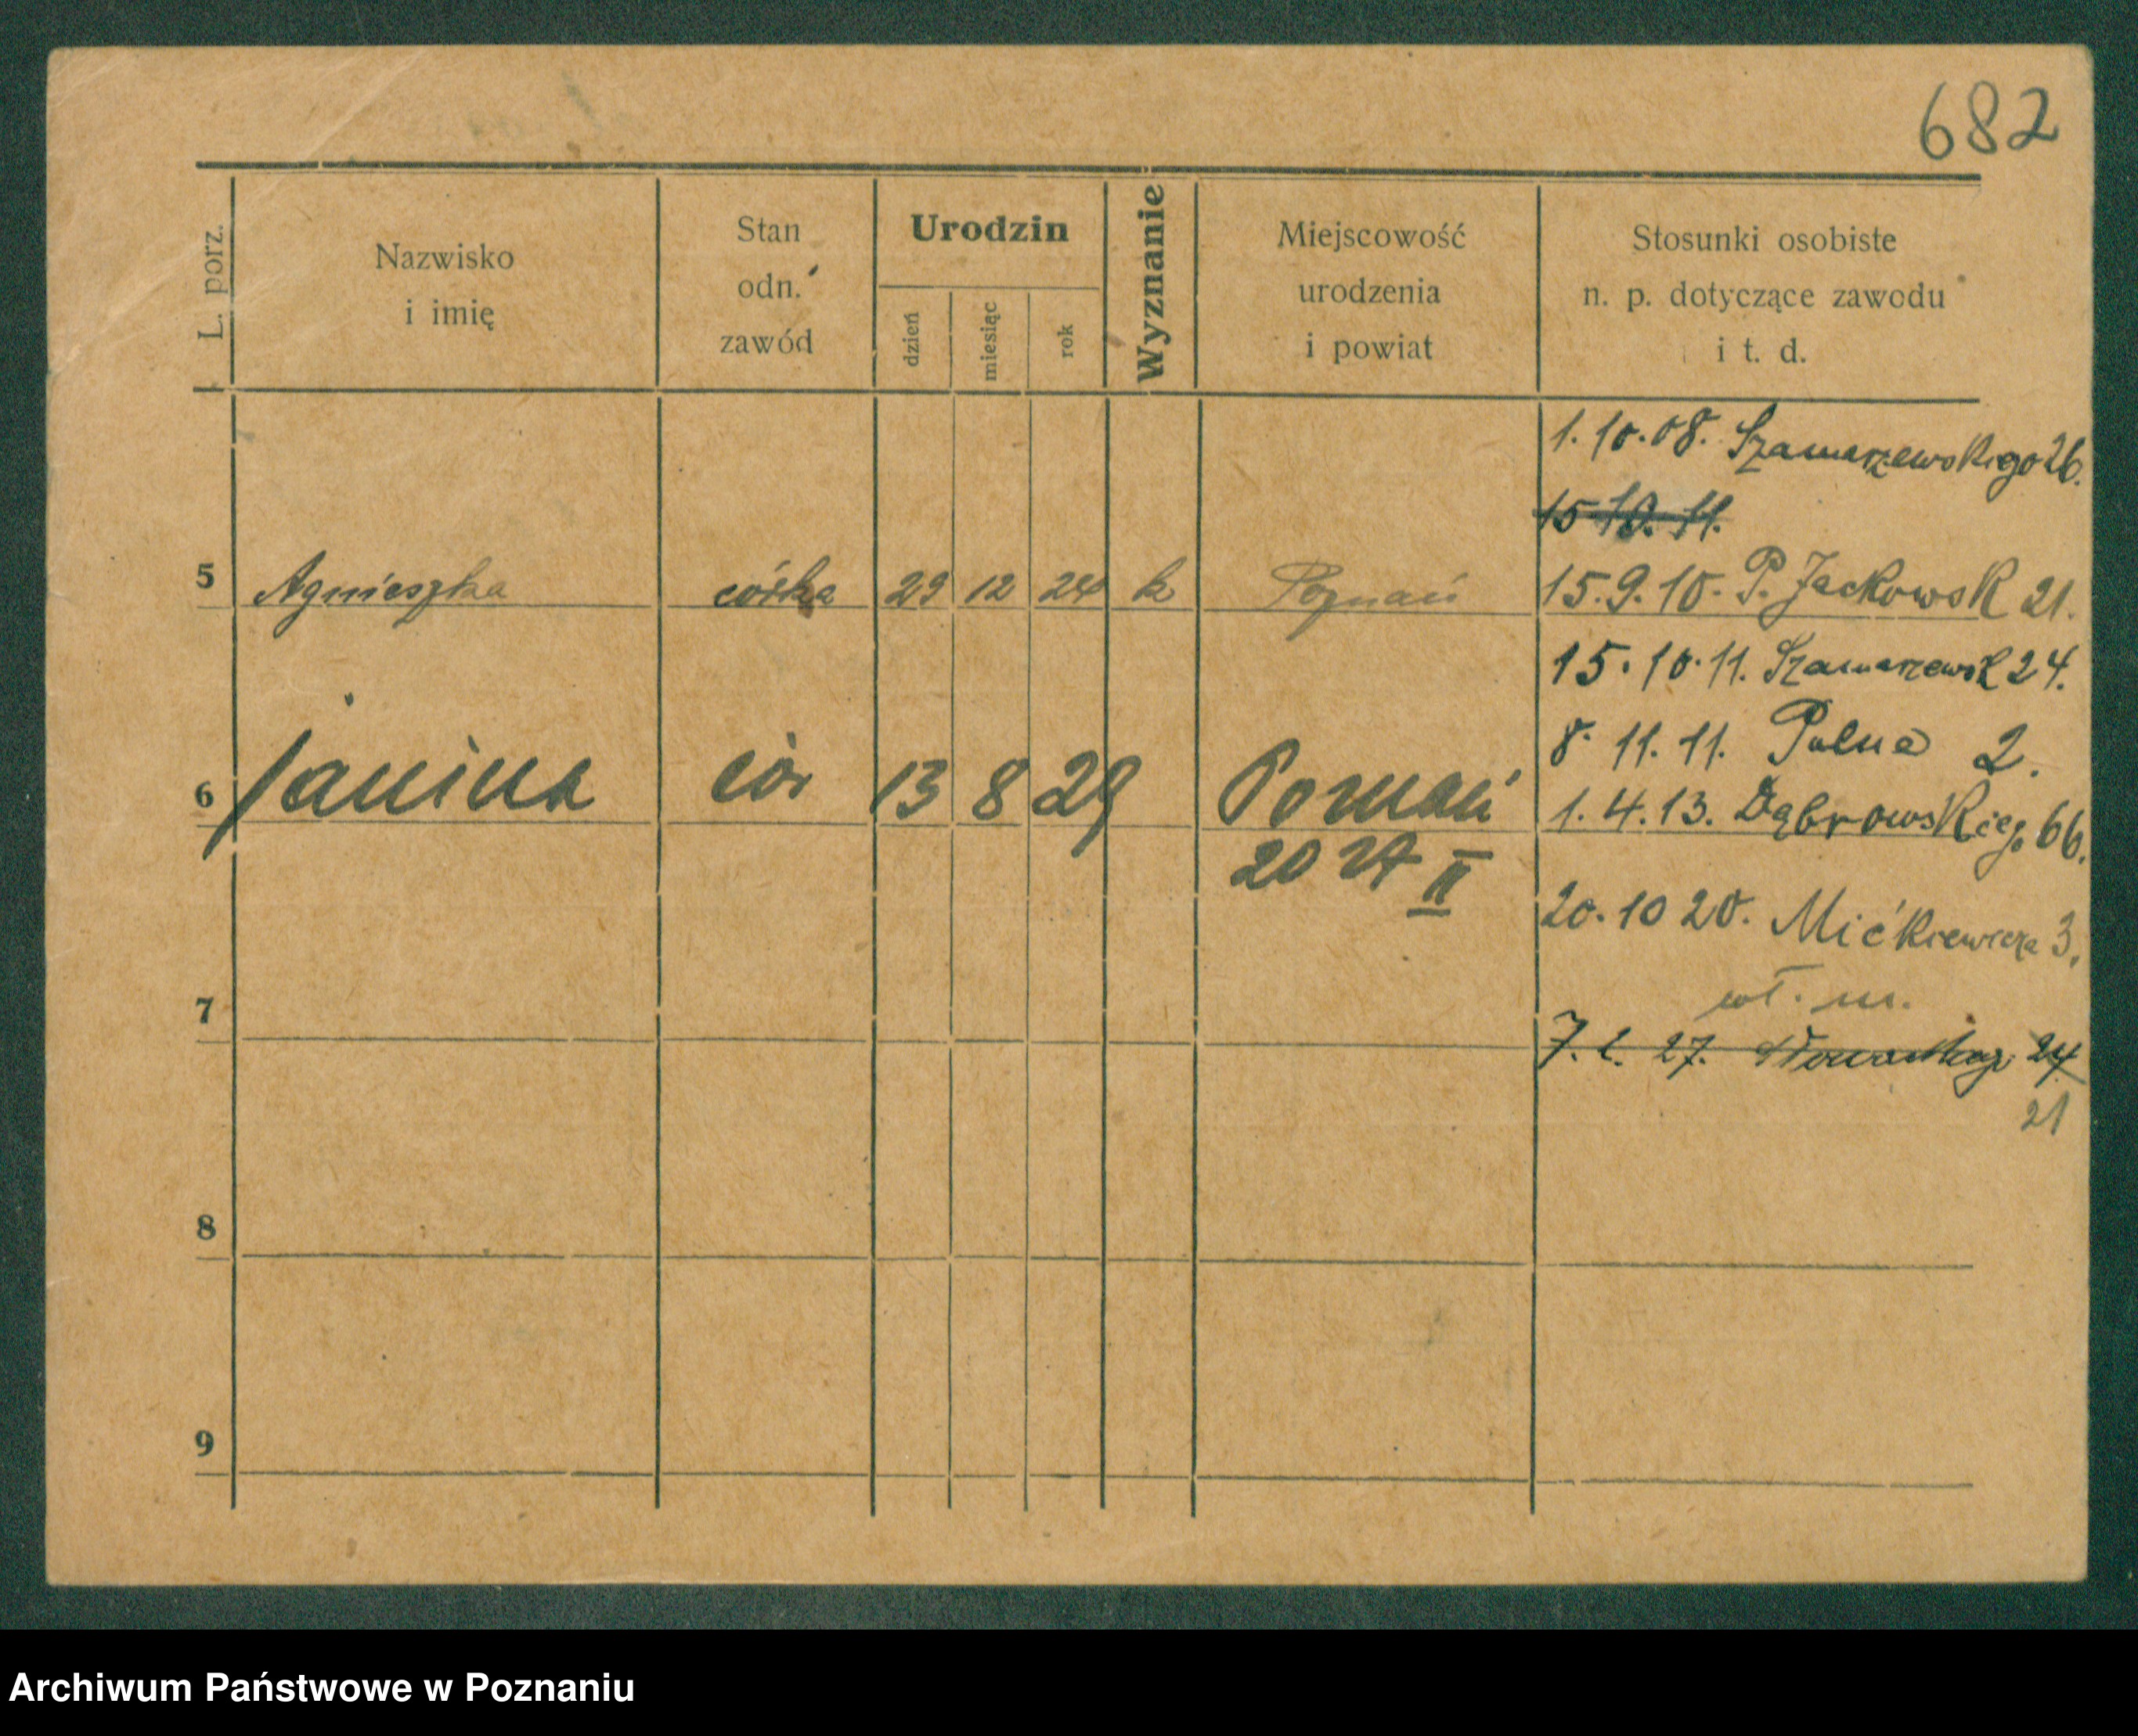 682
L. porz.
Nazwisko
i imię
Stan
odn.
zawód
Urodzin
dzień
miesiąc
rok
Wyznanie
Miejscowość
urodzenia
i powiat
Stosunki osobiste
n. p. dotyczące zawodu
i t. d.
1. 10. 08. Szamarzewskiego 26.
15 10. 11.
5 Agnieszka córka 29 12 24 k Poznań 15. 9. 10. P. Jackowsk 21.
15. 10. 11. Szamarzewsk 24.
8. 11. 11. Polna 2.
6 Janina cór 13 8 29 Poznań 1. 4. 13. Dąbrowskieg. 66.
20 II
20. 10 20. Mickiewicza 3.
wł. m.
7 7. 27. 24
21
8
9
Archiwum Państwowe w Poznaniu